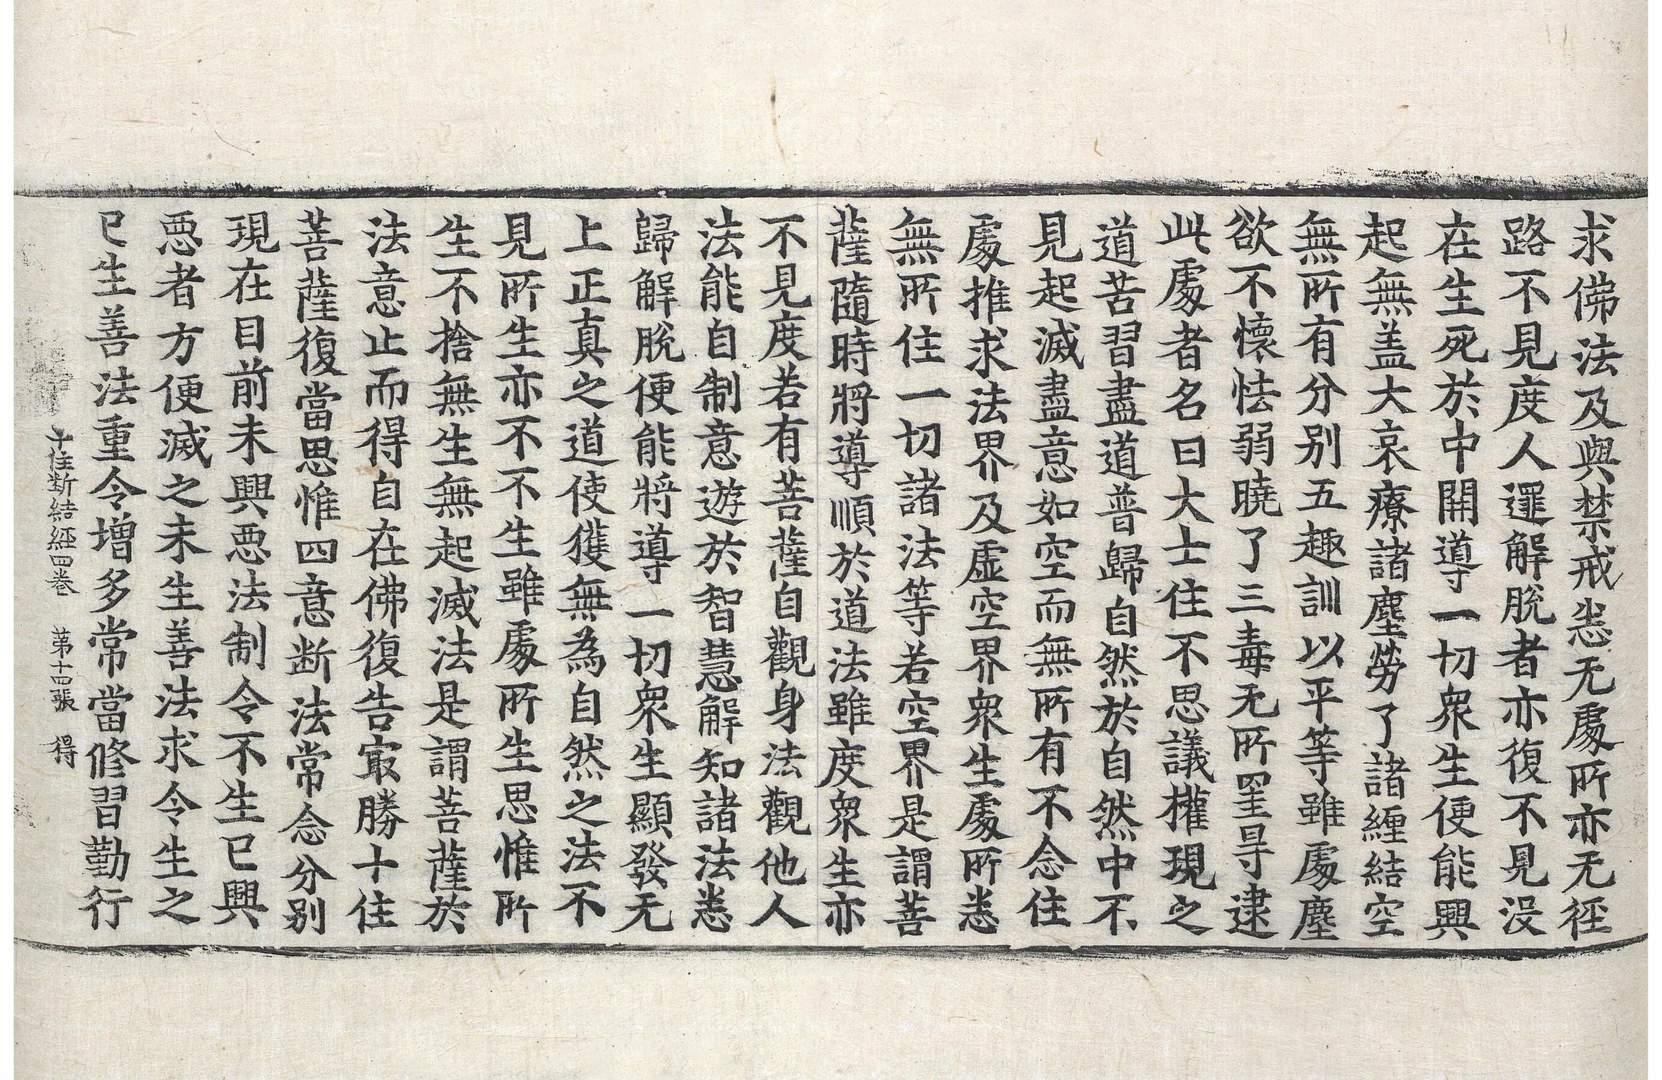 求佛法及與禁戒悉无處所亦无徑
路不見度人邏解脫者亦復不見没
在生死於中開導一切衆生便能興
起無盖大哀療諸塵勞了諸纏結空
無所有分别五趣訓以平等雖處塵
欲不懷怯弱曉了三毒无所罣导逮
此處者名曰大士住不思議權現之
道苦習盡道普歸自然於自然中不
見起滅盡意如空而無所有不念住
處推求法界及虛空界衆生處所悉
無所住一切諸法等若空界是謂菩
薩隨時將導順於道法雖度衆生亦
不見度若有菩薩自觀身法觀他人
法能自制意遊於智慧解知諸法悉
歸解脫便能將導一切衆生顯發无
上正真之道使獲無為自然之法不
見所生亦不不生雖處所生思惟所
生不捨無生無起滅法是謂菩薩於
法意止而得自在佛復告㝡勝十住
菩薩復當思惟四意断法常念分别
現在目前未興惡法制令不生已興
惡者方便滅之未生善法求令生之
已生善法重令增多常當修習勤行
十住断結經四卷 第十四張 得